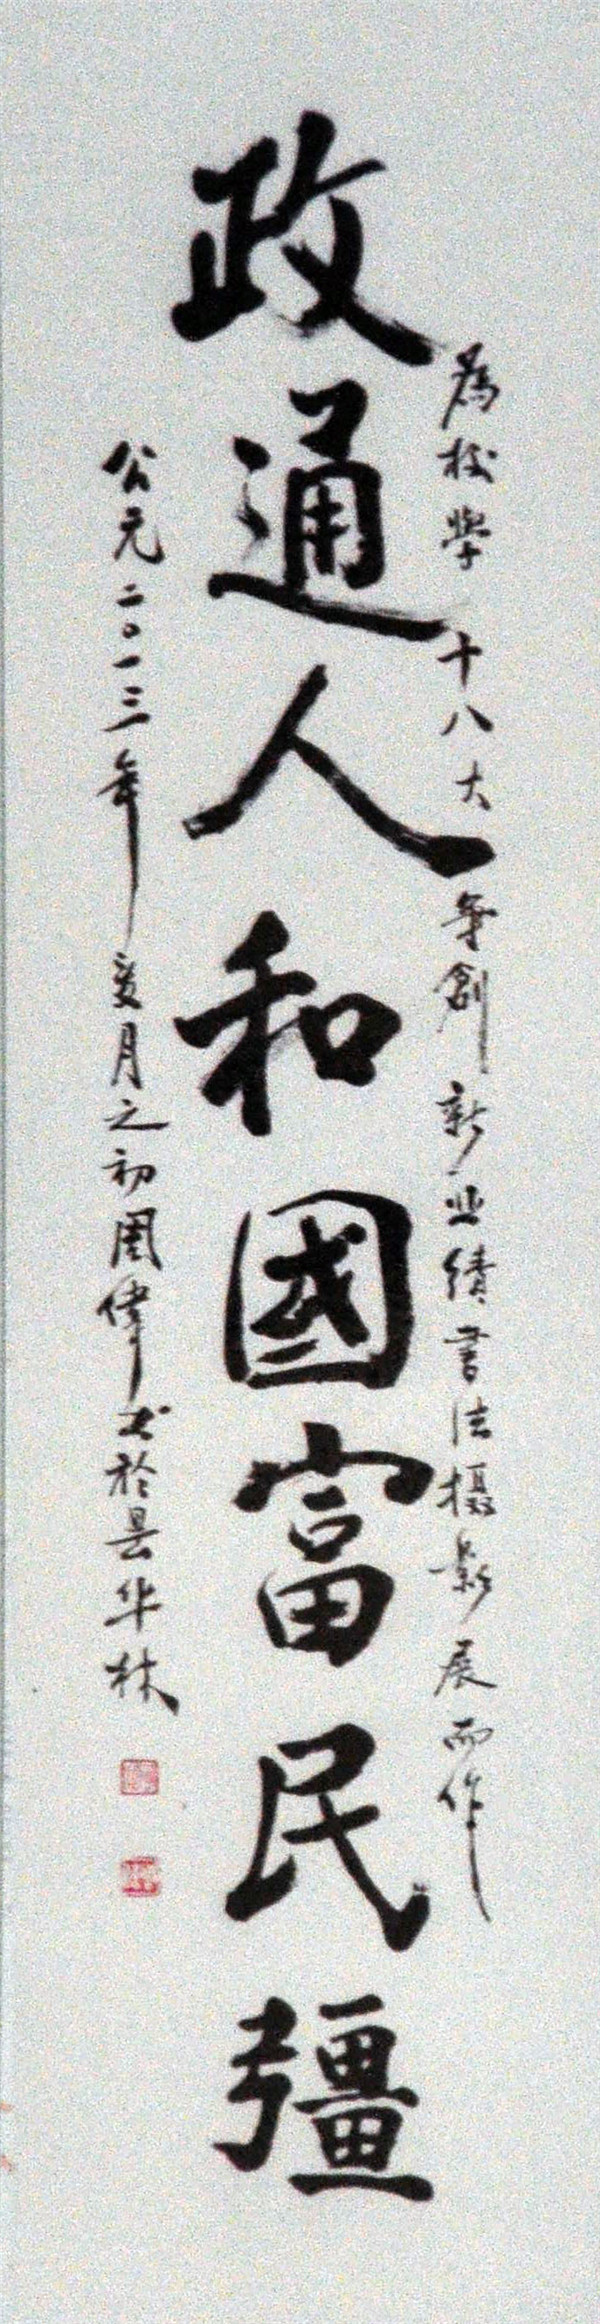 為校學十八大 争創新业绩書法摄影展而作
政通人和國富民彊
公元二〇一三年夏月之初周偉书於昙华林